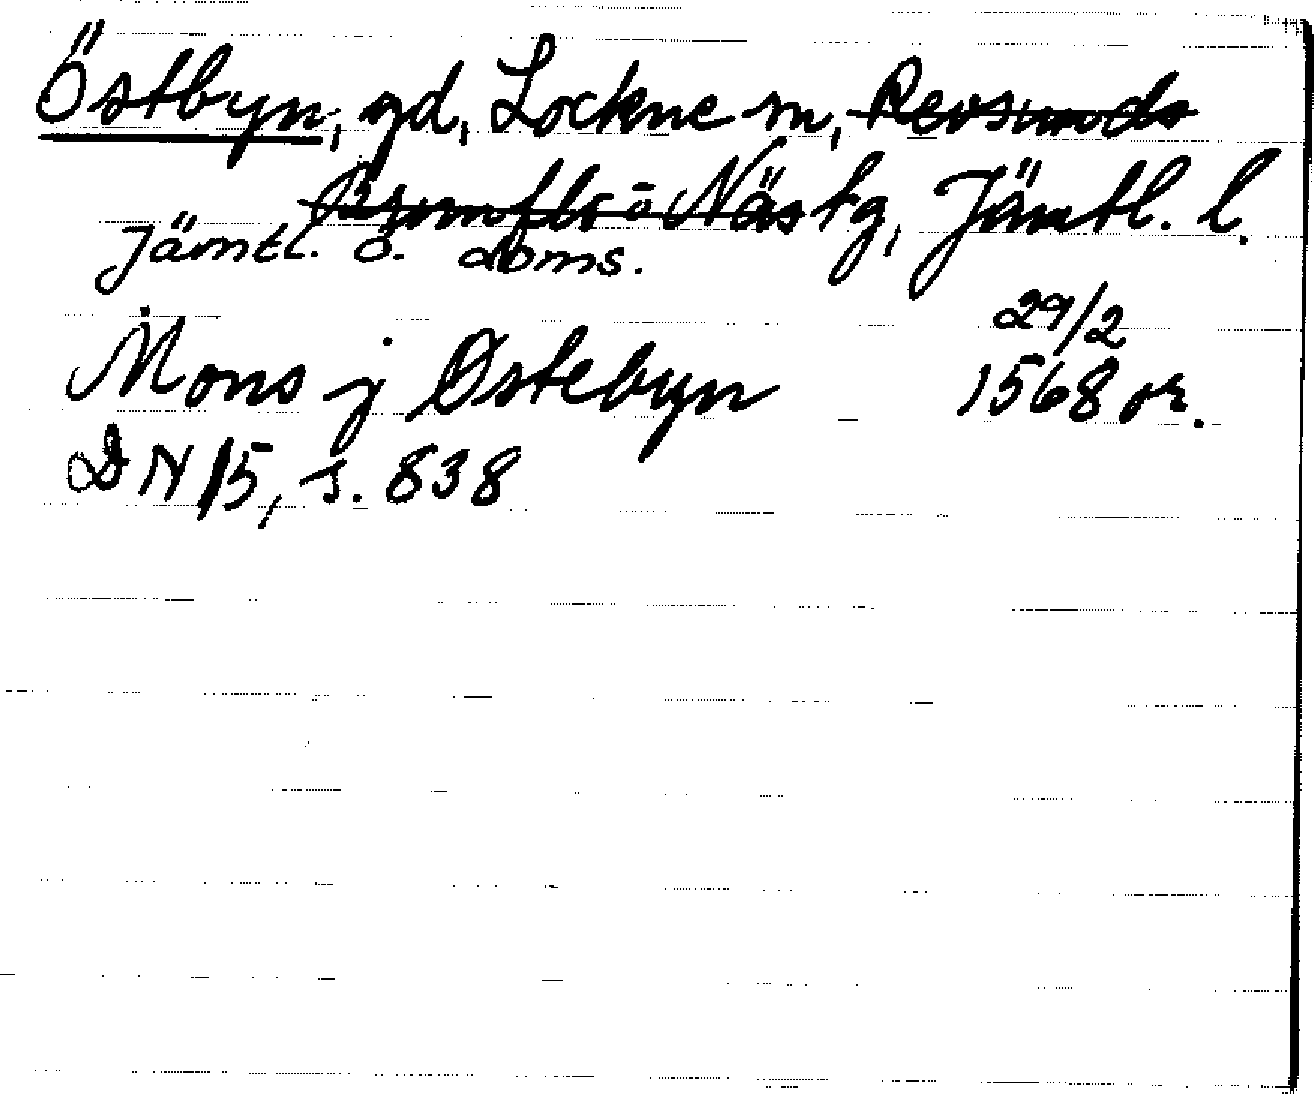 Östbyn, gd, Lockne sn, Revsunds
Brunflo o Näs tg, Jämtl. l.
Jämtl. ö. doms.
29/2
Mons j Østebyn 1568 or.
DN 15, s. 838